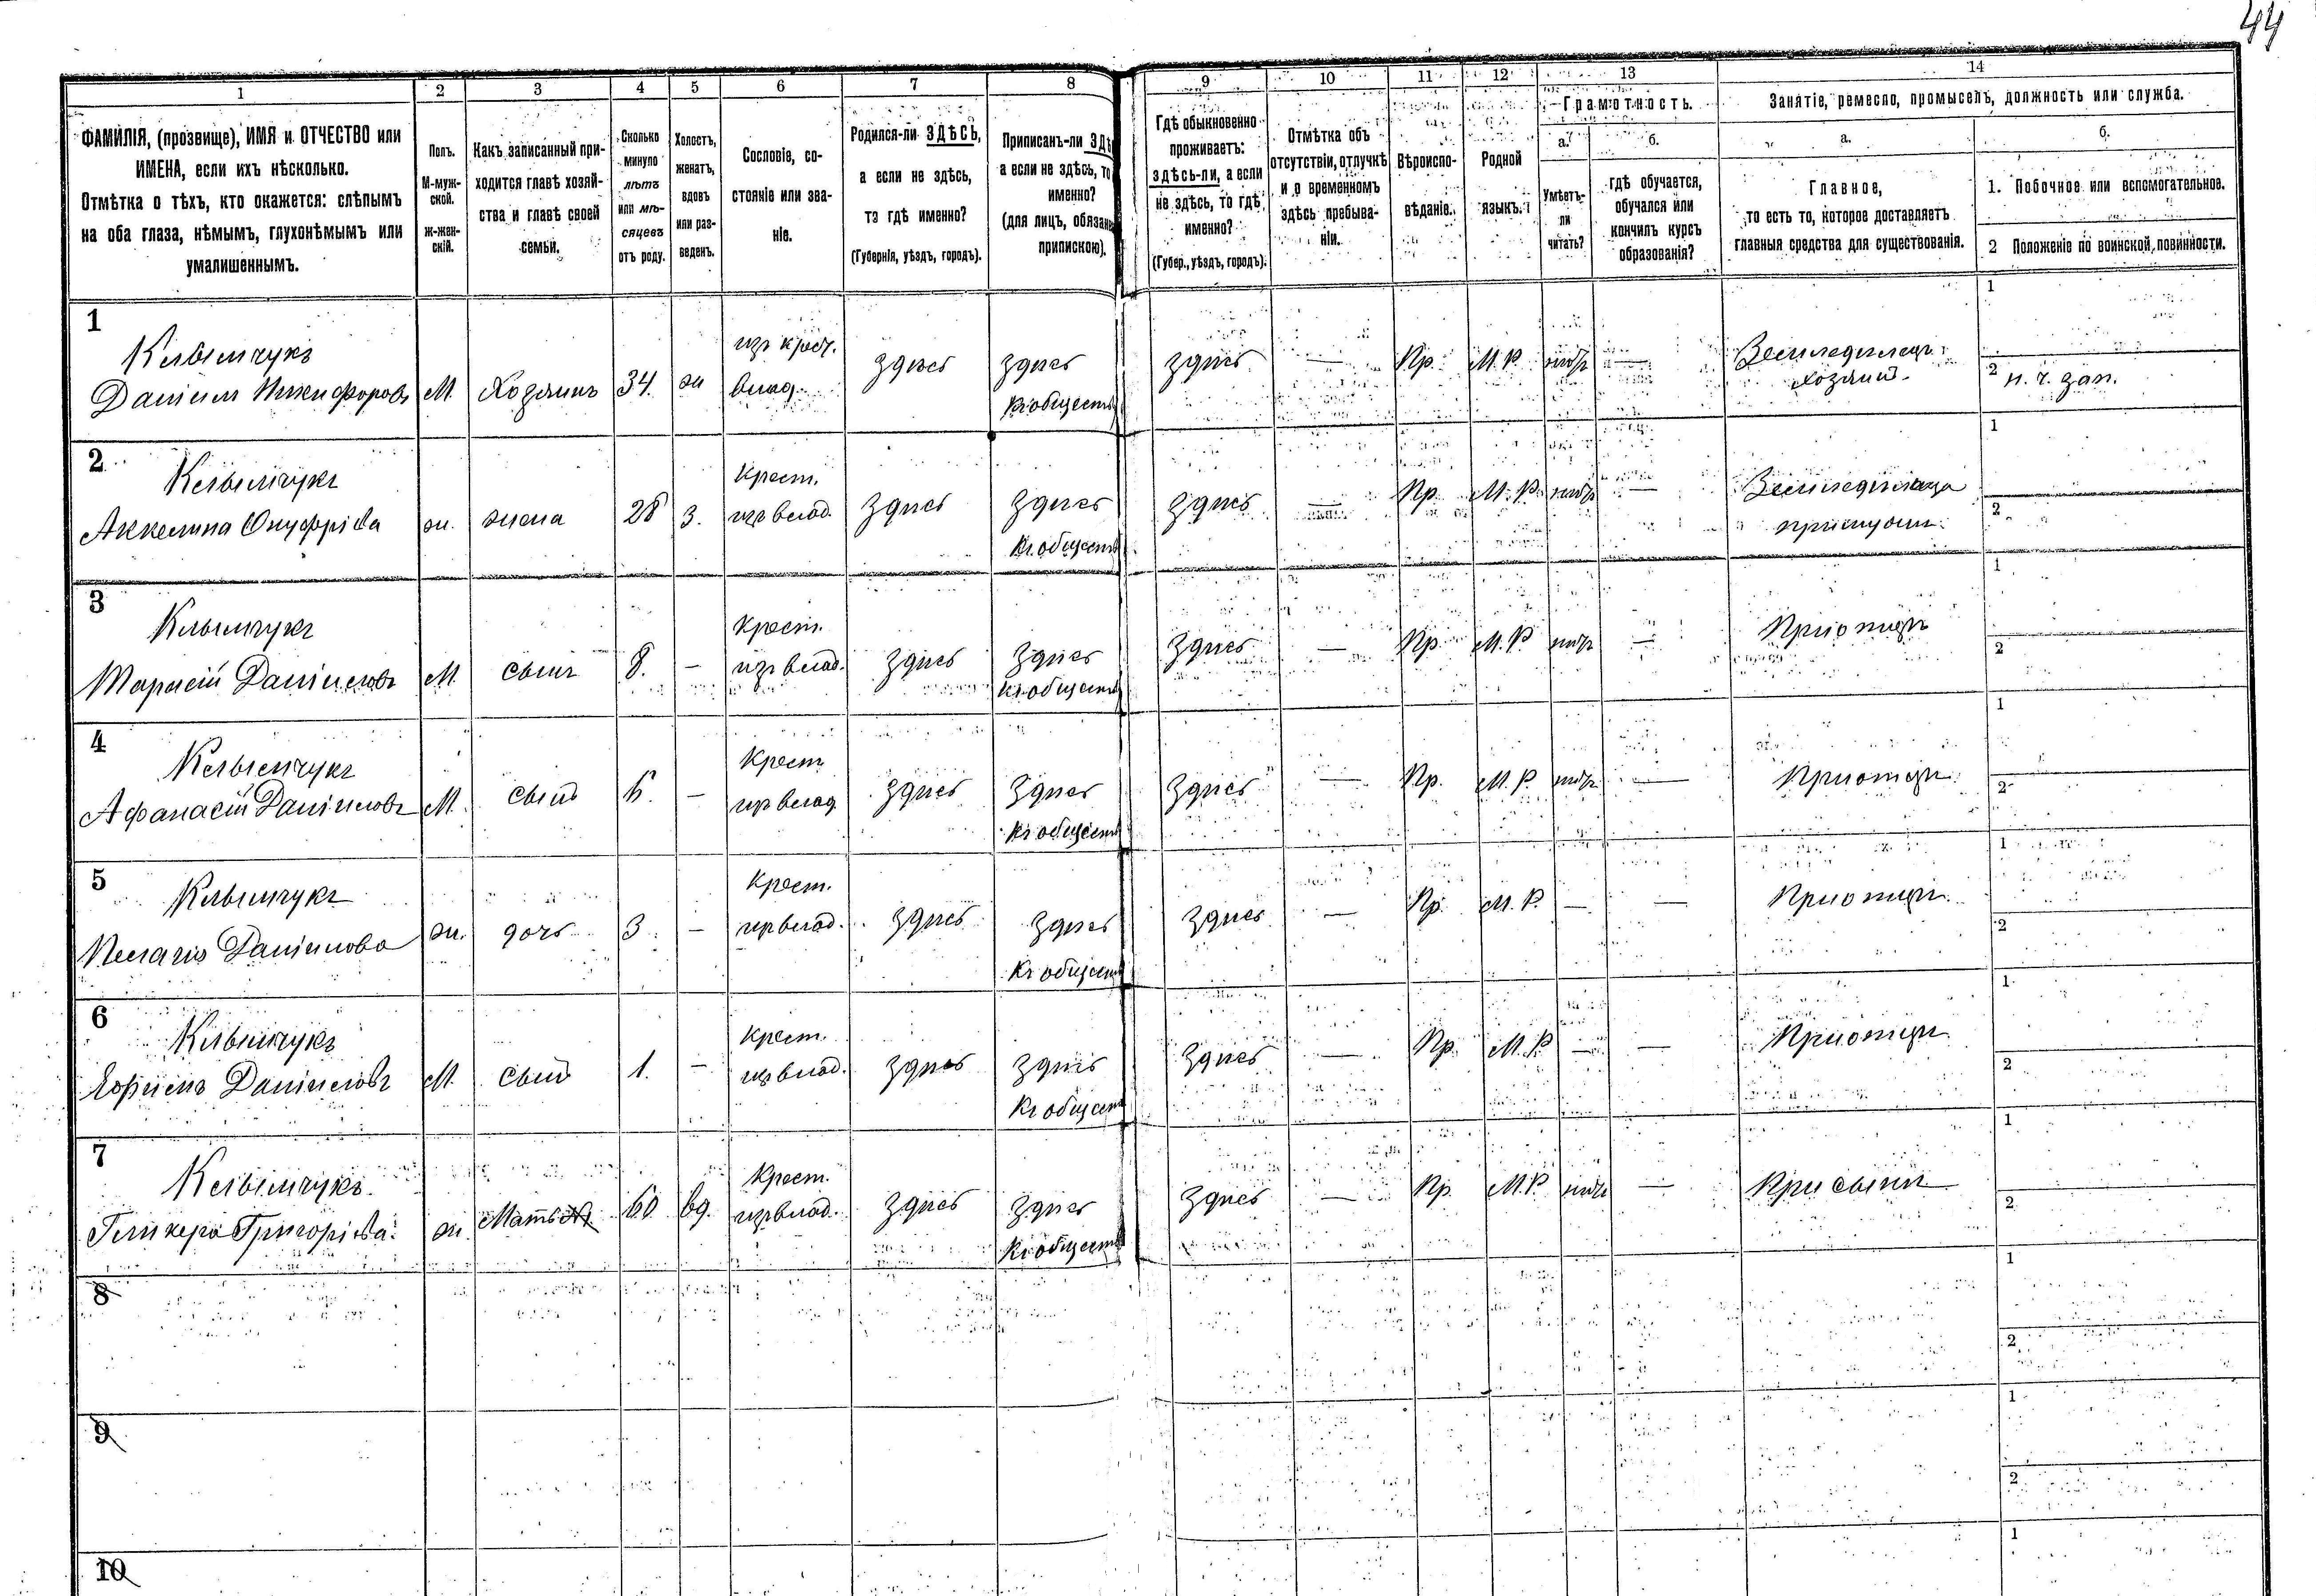 44
1 2 3 4 5 6 7 8 9 10 11 12 13 14
ФАМИЛІЯ, (прозвище), ИМЯ и ОТЧЕСТВО или
ИМЕНА, если ихъ нѣсколько.
Отмѣтка о тѣхъ, кто окажется: слѣпымъ
на оба глаза, нѣмымъ, глухонѣмымъ или
умалишеннымъ.
Полъ.
М-муж-
ской.
ж-жен-
скій.
Какъ записанный при-
ходится главѣ хозяй-
ства и главѣ своей
семьи.
Сколько
минуло
лѣтъ
или мѣ-
сяцевъ
отъ роду.
Холостъ,
женатъ,
вдовъ
или раз-
веденъ.
Сословіе, со-
стояніе или зва-
ніе.
Родился-ли ЗДѢСЬ,
а если не здѣсь,
то гдѣ именно?
(Губернія, уѣздъ, городъ).
Приписанъ-ли ЗДѢ
а если не здѣсь, то
именно?
(для лицъ, обязан
припискою).
Гдѣ обыкновенно
проживаетъ:
здѣсь-ли, а если
не здѣсь, то гдѣ
именно?
(Губер., уѣздъ, городъ).
Отмѣтка объ
отсутствіи, отлучкѣ
и о временномъ
здѣсь пребыва-
ніи.
Вѣроиспо-
вѣданіе.
Родной
языкъ.
Грамотность.
а.
Умѣетъ-
ли
читать?
б.
гдѣ обучается,
обучался или
кончилъ курсъ
образованія?
Занятіе, ремесло, промыселъ, должность или служба.
а.
Главное,
то есть то, которое доставляетъ
главныя средства для существованія.
б.
1. Побочное или вспомогательное.
2 Положеніе по воинской повинности.
1
Даніилъ Никифоровъ М. Хозяинъ 34. ж
из крест. влад.
здѣсь здѣсь
к обществ
здѣсь — Пр. М. Р. нѣтъ —
Земледѣлецъ
хозяинъ
1
2 н. ч. зап.
2
Аккелина Онуфріева ж. жена 28 з.
крест.
из влад. здѣсь здѣсь
к обществ
здѣсь — Пр. М. Р. нѣтъ —
Земледѣлица
при мужѣ
1
2
3
Тарасій Даніиловъ М. сынъ 8. —
крест.
из влад. здѣсь здѣсь
к обществ
здѣсь — Пр. М. Р нѣтъ —
При отцѣ
1
2
4
Афанасій Даніиловъ М. сынъ 6. —
крест
из влад здѣсь здѣсь
к обществ
здѣсь — Пр. М. Р. нѣтъ —
При отцѣ
1
2
5
Пелагія Даніилова ж. дочь 3. —
крест.
из влад. здѣсь здѣсь
к обществ
здѣсь — Пр. М. Р. — —
При отцѣ
1
2
6
Даніиловъ М. сынъ 1. —
крест.
из влад. здѣсь здѣсь
к обществ
здѣсь — Пр. М. Р. — —
При отцѣ
1
2
7
Гликера Григоріева ж. Мать 60 вд.
крест.
из влад. здѣсь здѣсь
к обществ
здѣсь — Пр. М. Р. нѣтъ —
При сынѣ
1
2
8
1
2
9
1
2
10
1